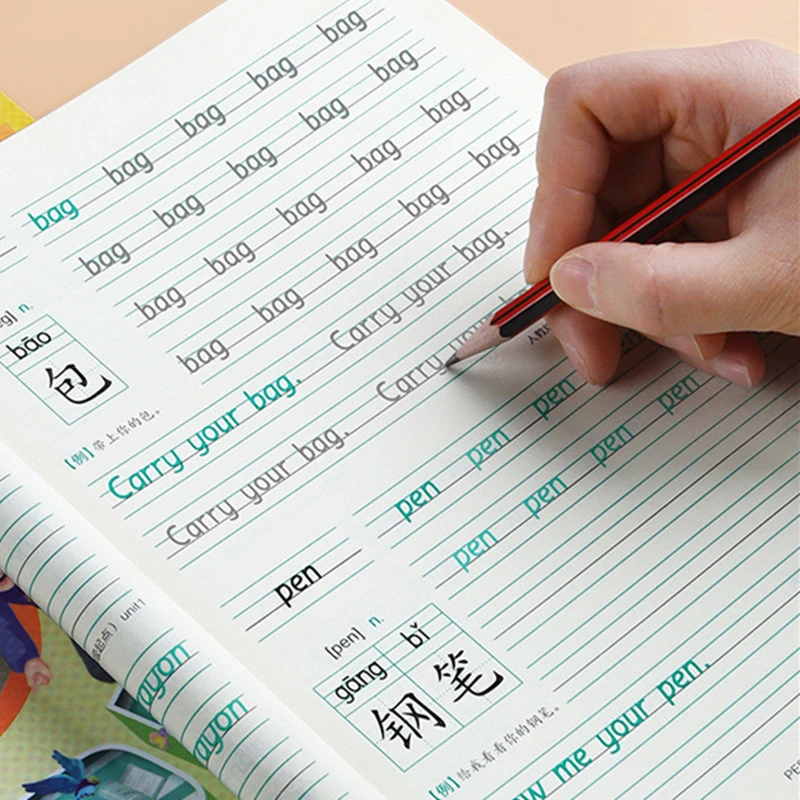 bag bag bag bag bag
bag bag bag bag bag
bag bag bag bag bag
bag bag bag bag bag
g] n.
bāo
包
[例]带上你的包。
Carry your bag. Carry your bag.
Carry your bag. Carry your
人教
pen
pen pen pen
pen pen pen pen
[pen] n.
gāng bǐ
钢笔
[例]给我看看你的钢笔。
w me your pen.
PE
起点）unit1
ayon
ayon